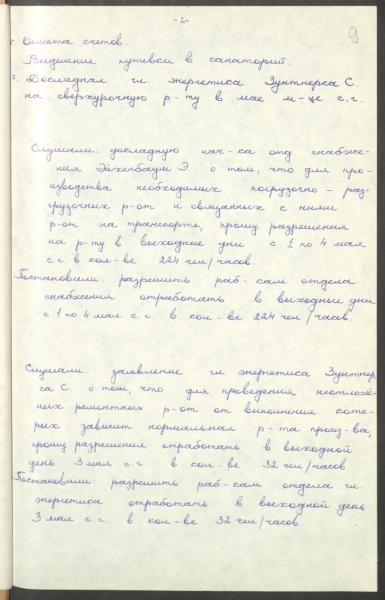 -2-
9
Оплата счетов.
Выделение путевки в санаторий.
Докладная гл. энергетика Зунтнерса С.
на сверхурочную р-ту в мае м-це с.г.
Слушали: докладную нач-ка отд. снабже-
ния Эйхенбаум Э. о том, что для про-
изводства необходимых погрузочно-раз-
грузочных р-от и связанных с ними
р-от на транспорте, прошу разрешения
на р-ту в выходные дни с 1 по 4 мая
с.г. в кол-ве 224 чел/часов.
Постановили: разрешить раб-кам отдела
снабжения отработать в выходные дни
с 1 по 4 мая с.г. в кол-ве 224 чел/часов.
Слушали: заявление гл. энергетика Зунтнер
са С. о том, что для проведения неотлож-
ных ремонтных р-от от выполнения кото-
рых зависит нормальная р-та произ-ва,
прошу разрешение отработать в выходной
день 3 мая с.г. в кол-ве 32 чел/часов
Постановили: разрешить раб-кам отдела гл.
энергетика отработать в выходной день
3 мая с.г. в кол-ве 32 чел/часов